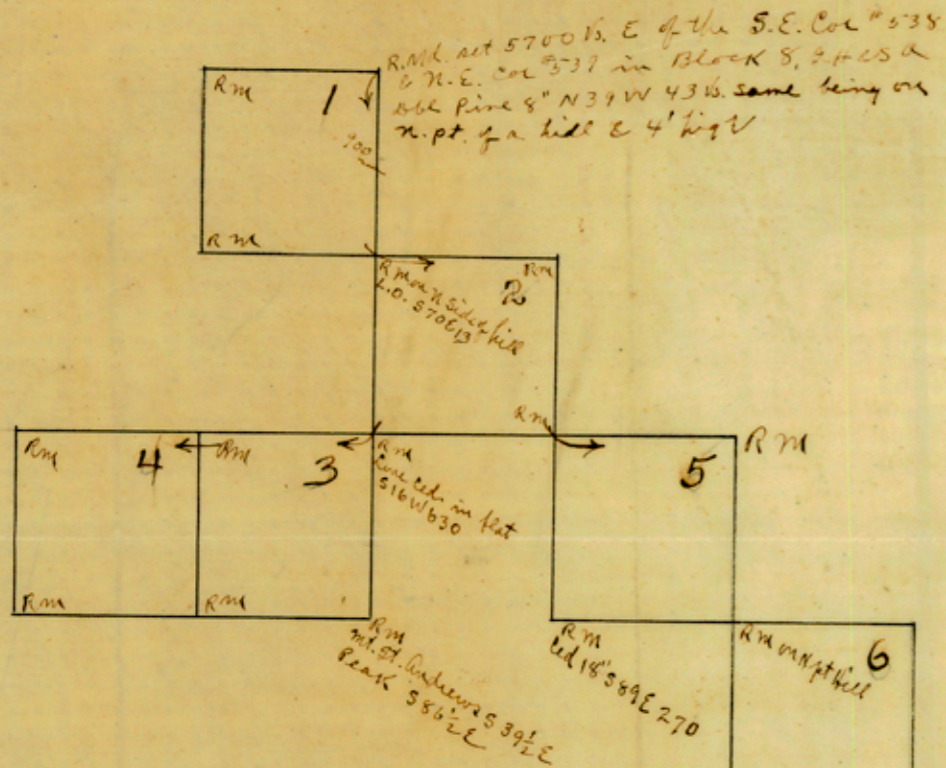 R.Md. set 5700 vs. E of the S.E. Cor #538
& N.E. Cor #539 in Block 8,
dbl Pine 8" N39W 43 vs. same being on
N. pt. of a hill & 4' high
Rm
1
900
Rm
Rm on N Side of hill
L.O. S70E13
Rm
2
Rm
Rm
4
Rm
3
Rm
Lone Ced. in flat
S16W630
5
Rm
Rm
Rm
Rm
Mt. St. Andrews S39½E
Peak S86½E
Rm
Ced 18" S89E 270
Rm on N pt Hill
6